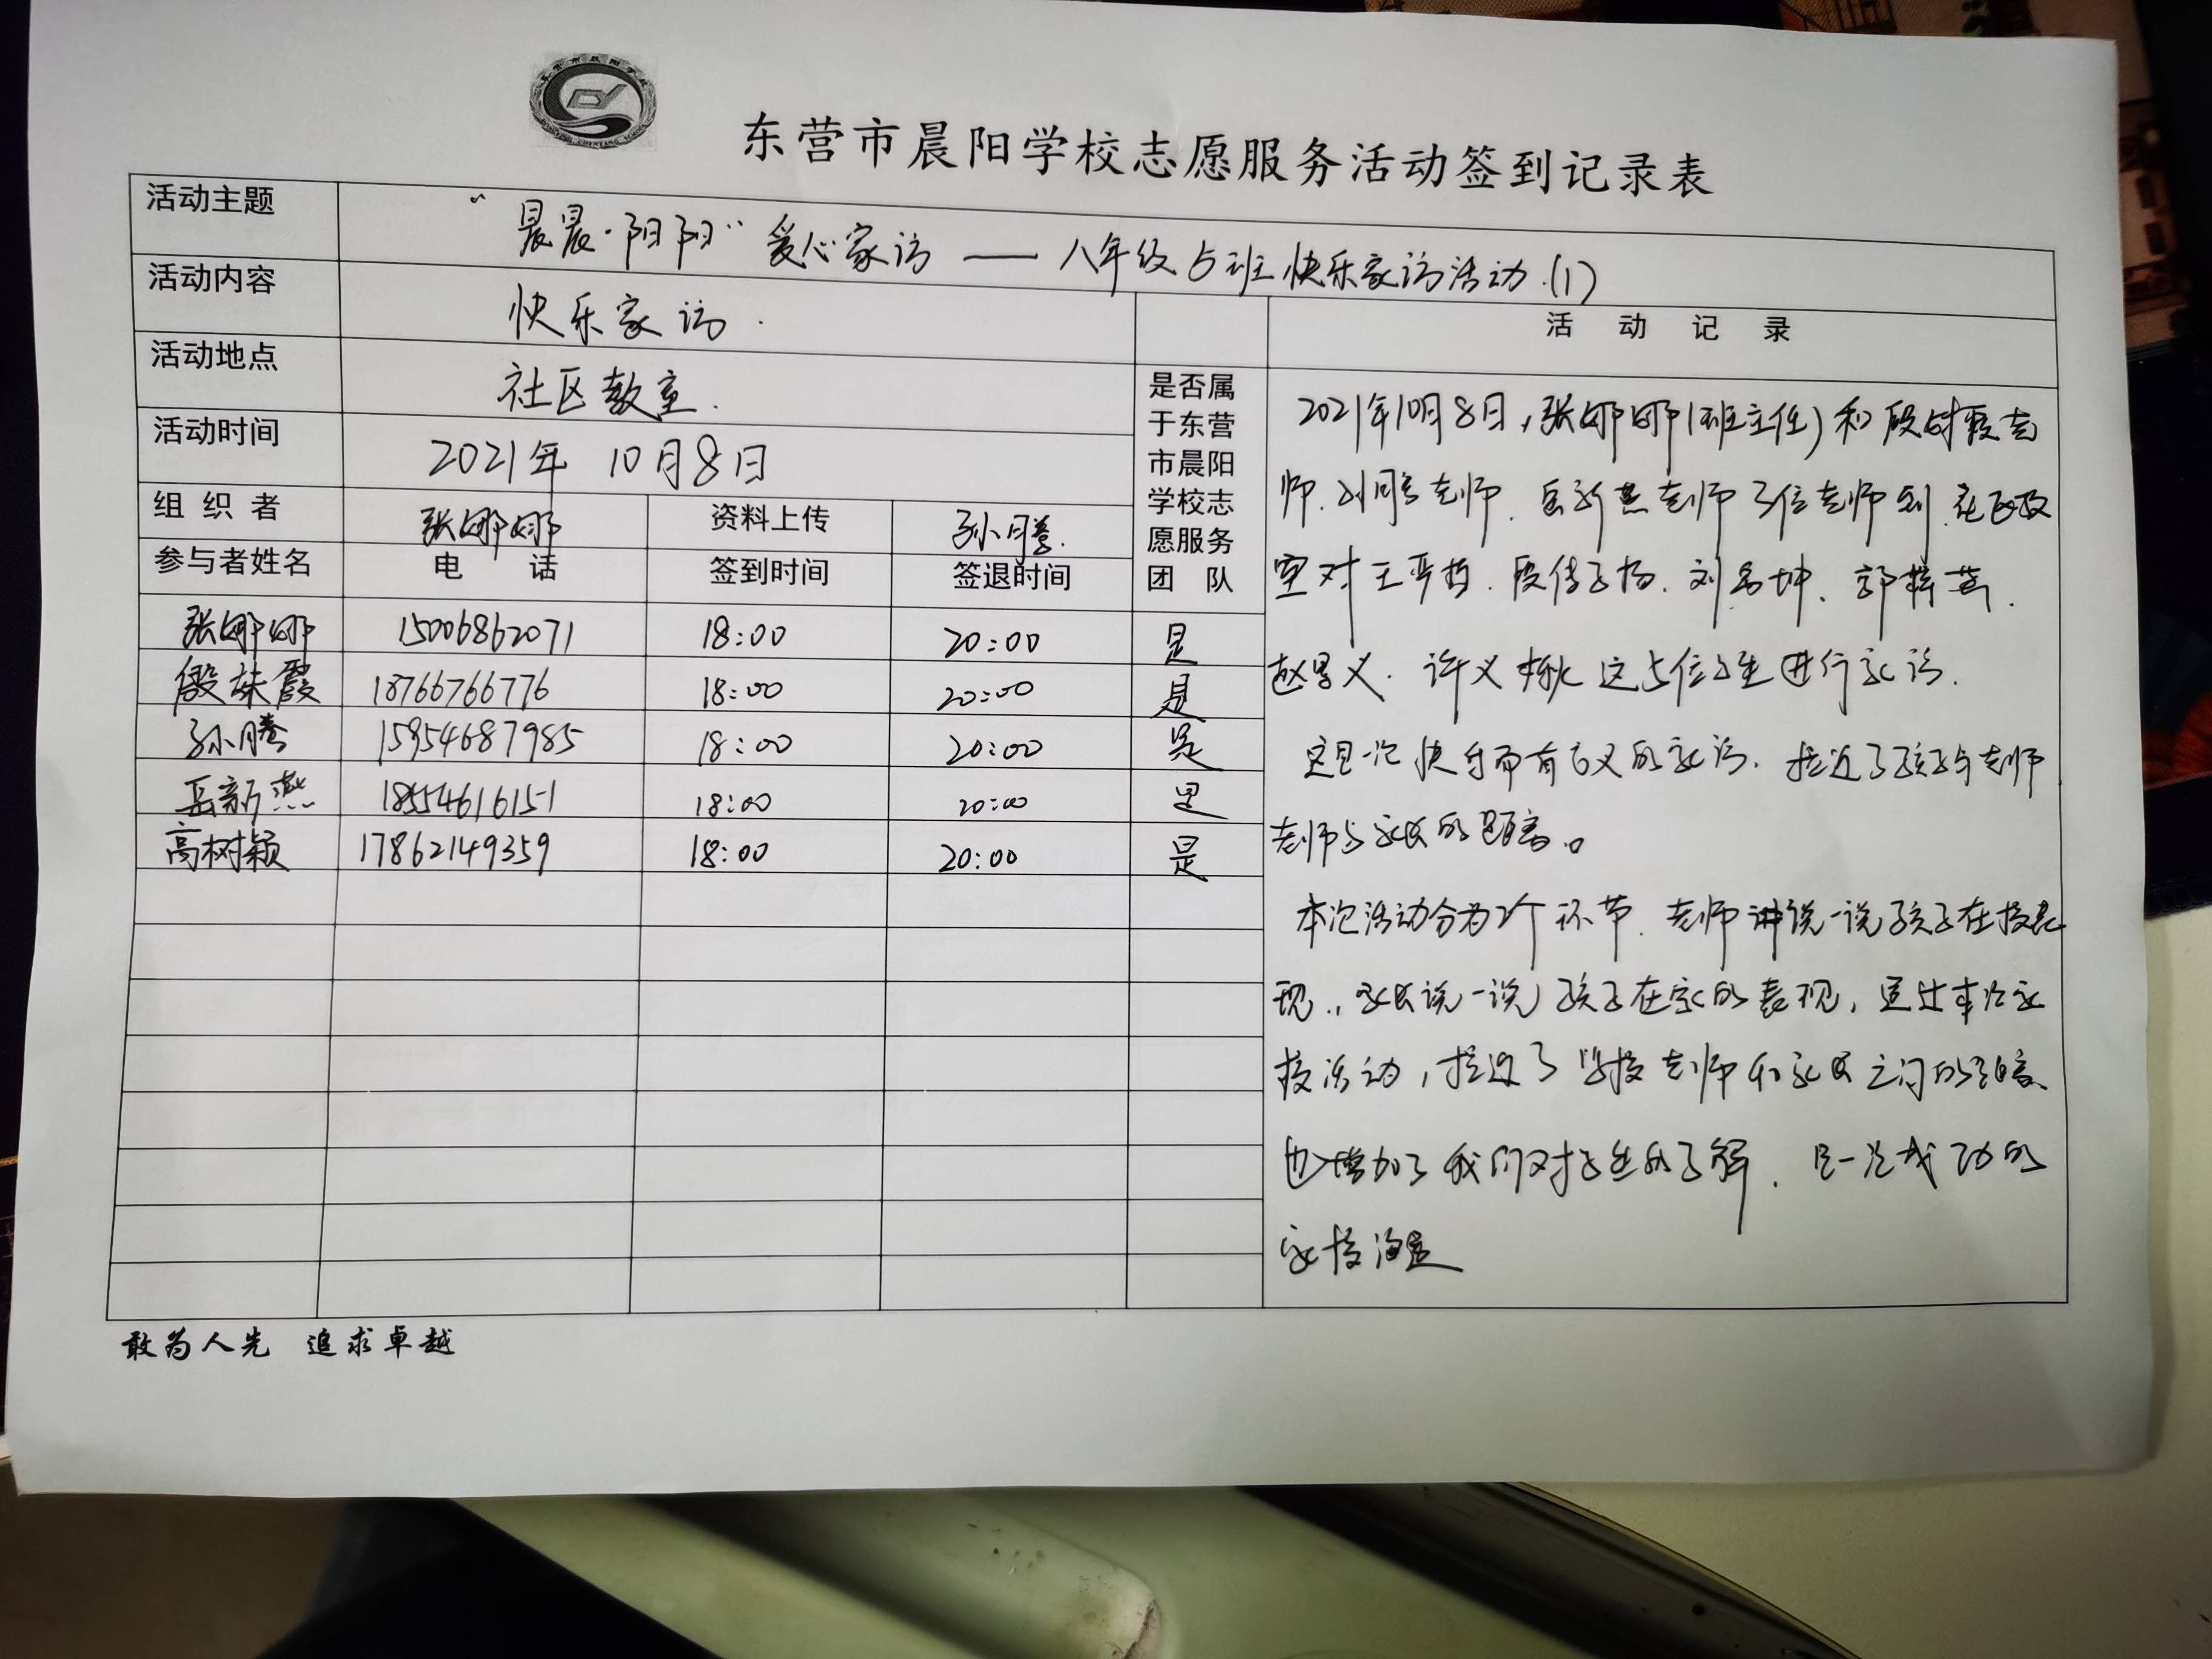 东营市晨阳学校志愿服务活动签到记录表
活动主题 "晨晨·阳阳"爱心家访——八年级5班快乐家访活动.(1)
活动内容 快乐家访.
活动记录
活动地点 社区教室.
是否属于东营市晨阳学校志愿服务团队
活动时间 2021年 10月8日
组织者 张娜娜 资料上传 孙腾.
参与者姓名 电话 签到时间 签退时间
张娜娜 15006862071 18:00 20:00 是
殷姝霞 18766766776 18:00 20:00 是
孙腾 15954687985 18:00 20:00 是
岳新燕 18554616151 18:00 20:00 是
高树颖 17862149359 18:00 20:00 是
2021年10月8日,张娜娜(班主任)和殷姝霞老
师、老师、岳新燕老师位老师到社区教
室对王、段、刘、郭、
赵、许这5位学生进行家访.
这是一次快乐而有意义的家访.拉近了孩子与老师
老师与家长的距离。
本次活动分为2个环节.老师讲说一说孩子在校表
现.,家长说一说孩子在家的表现,通过本次家
校活动,拉近了学校老师和家长之间的距离、
也增加了我们对学生的了解.是一次成功的
家校沟通
敢为人先 追求卓越